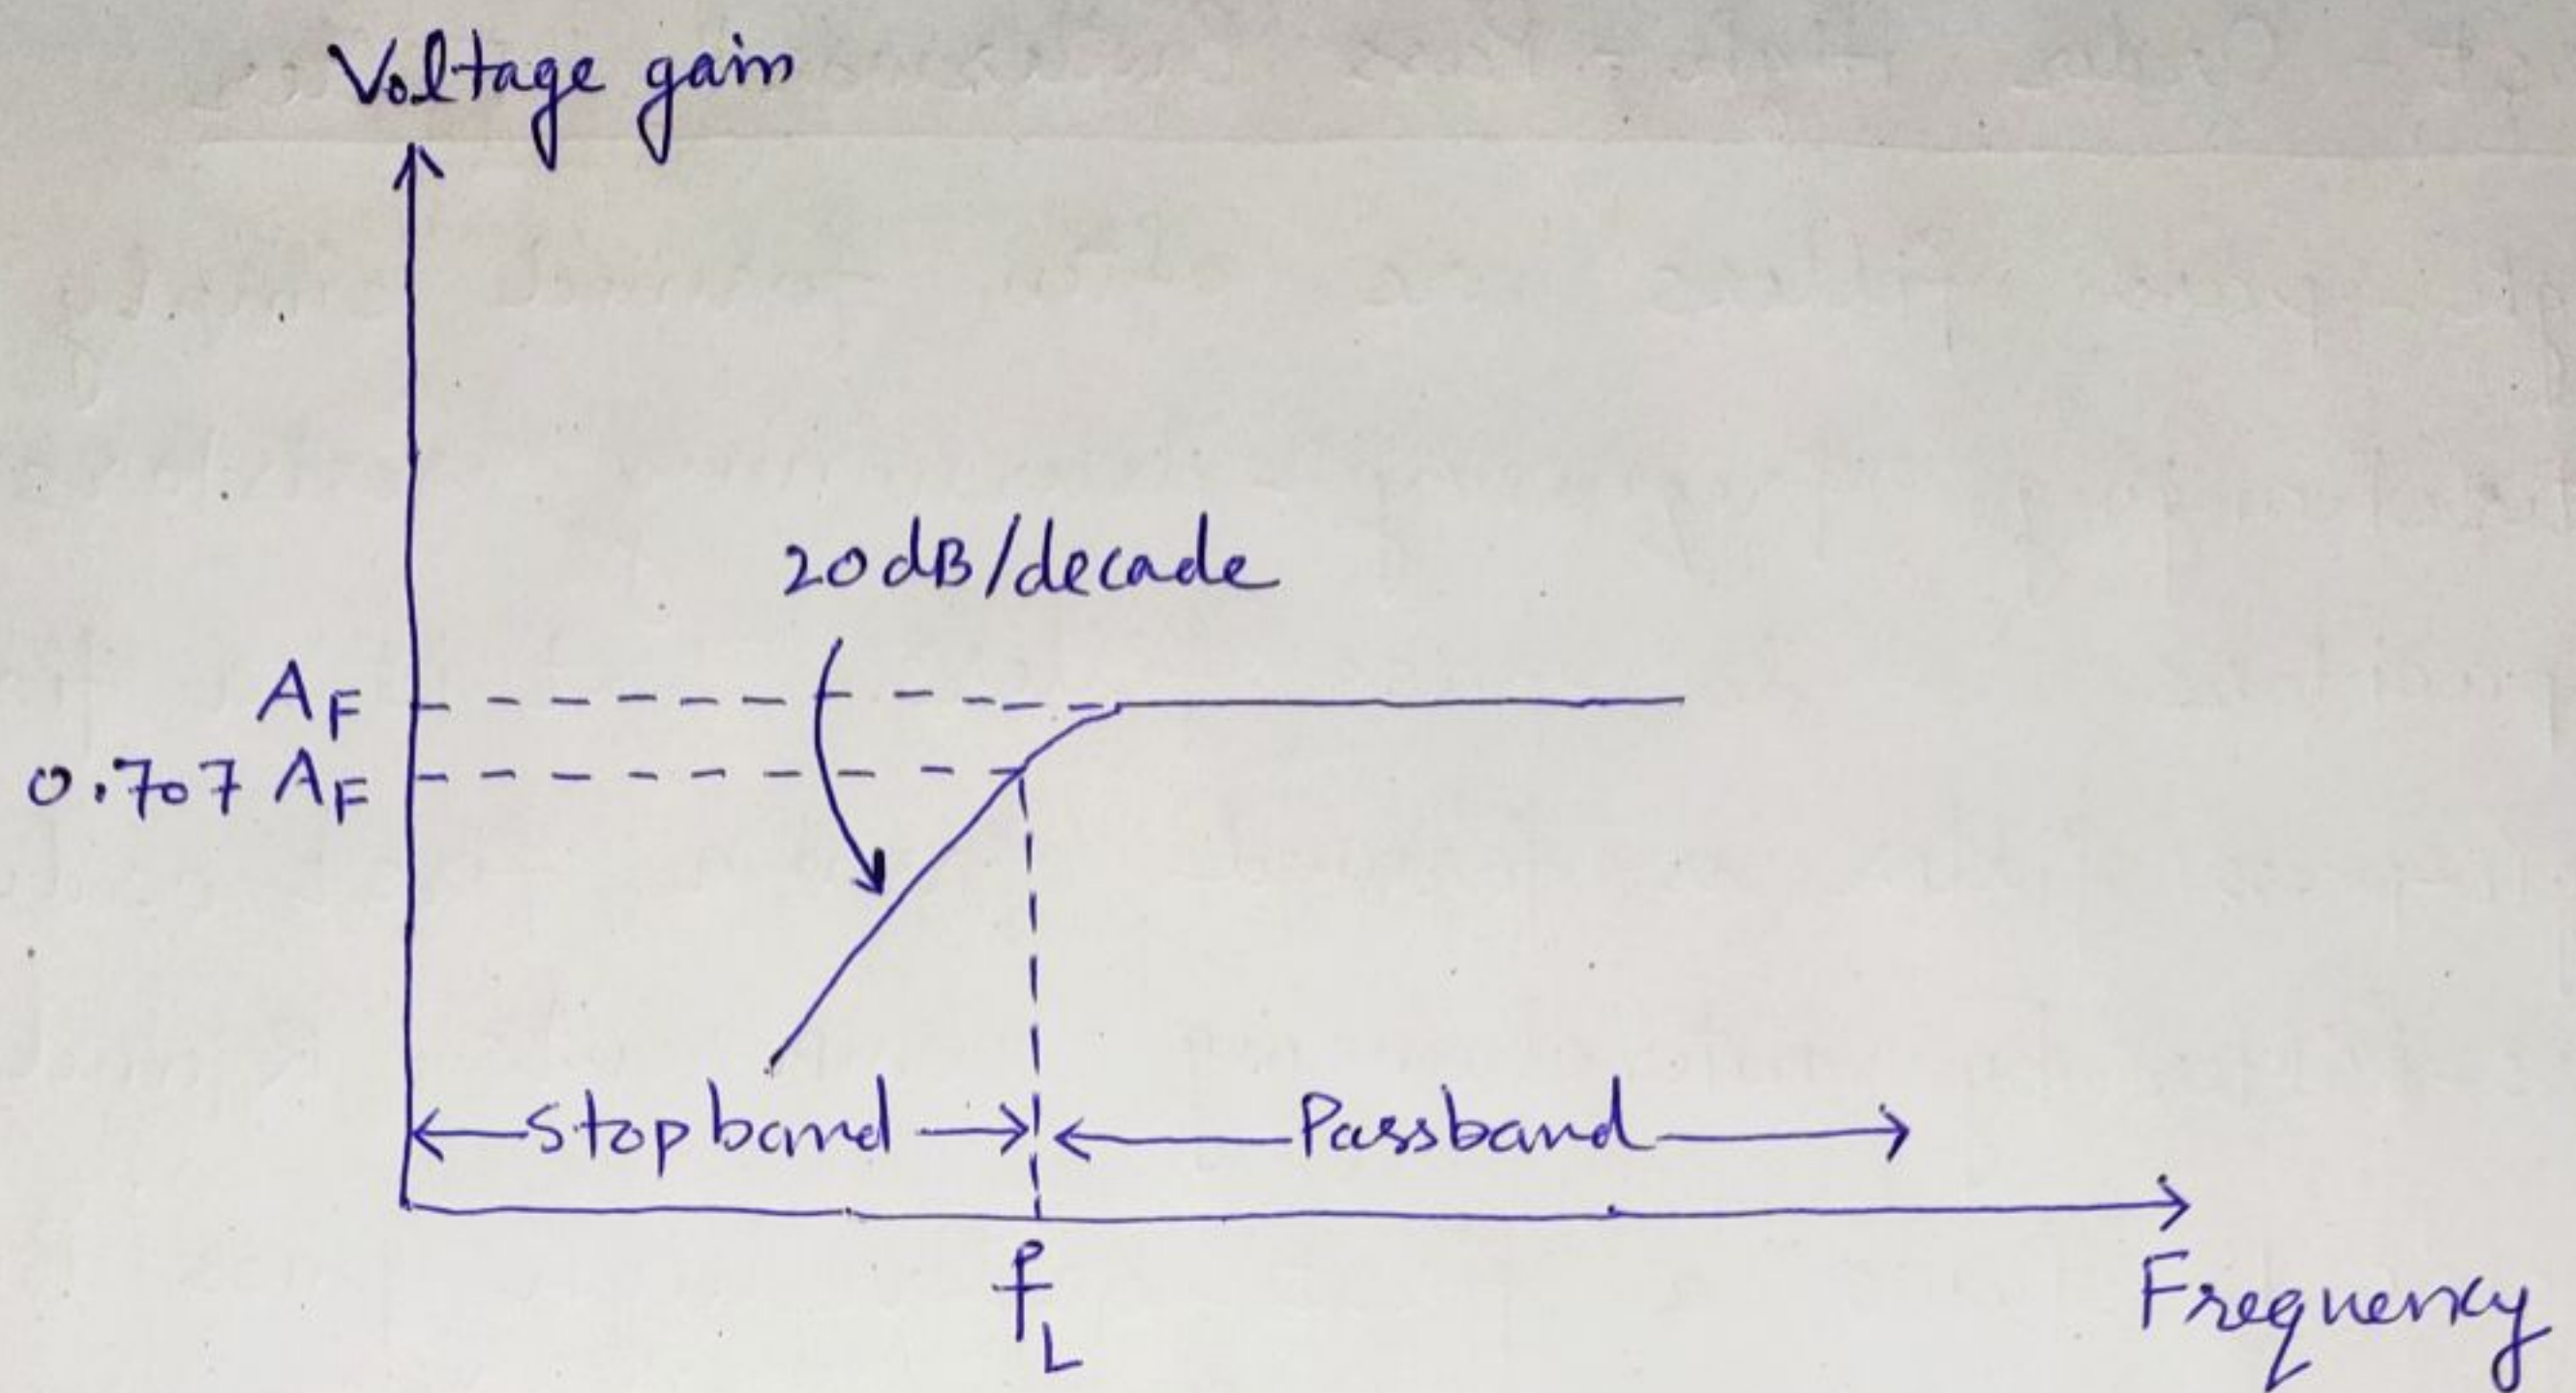 Voltage gain
20dB/decade
AF
0.707 AF
Stopband
Passband
fL
Frequency